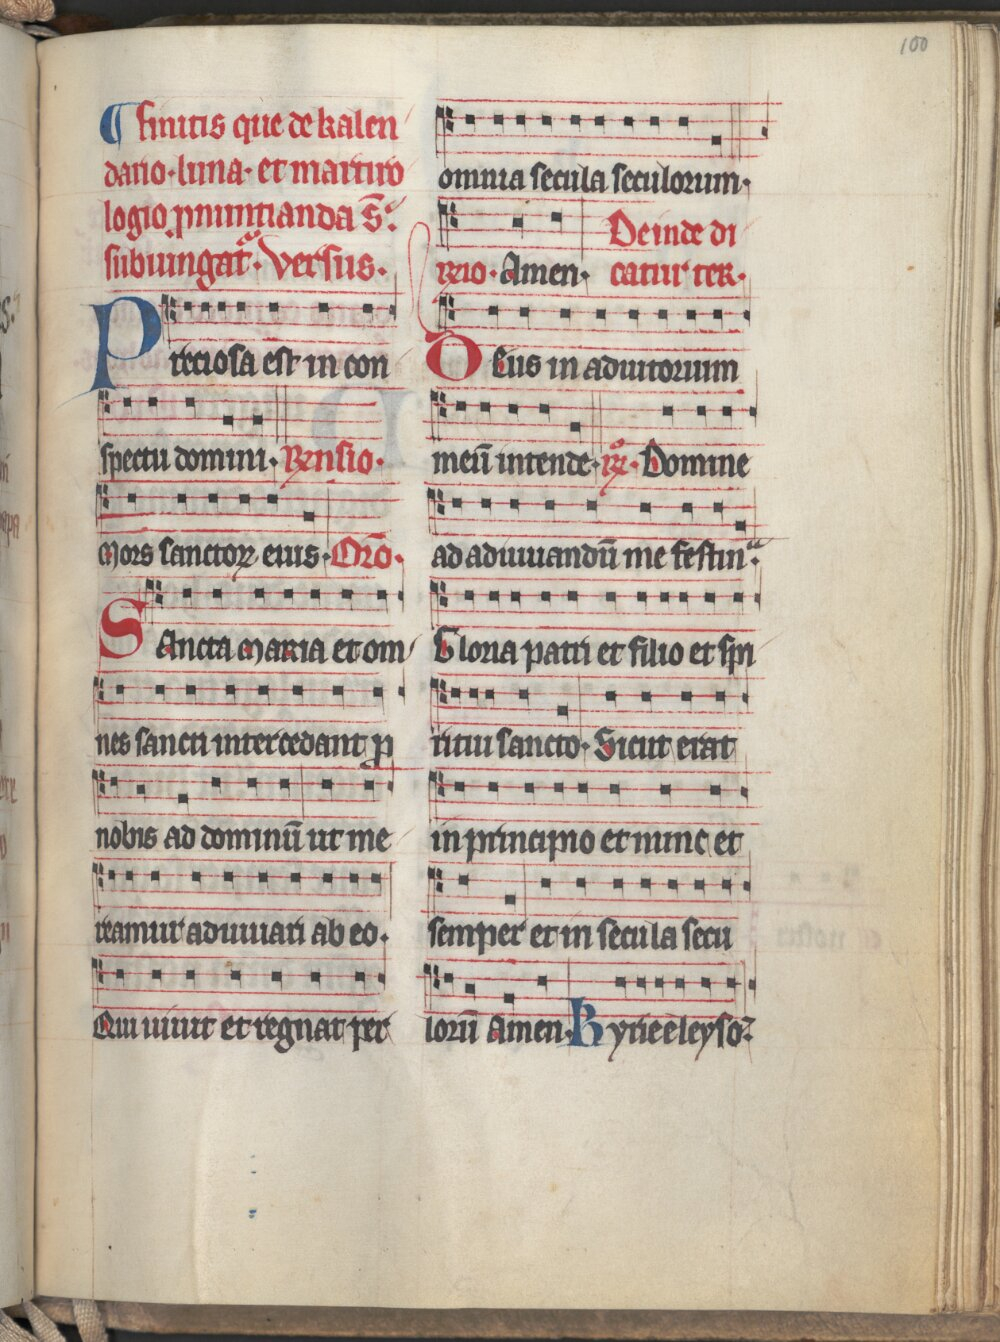 100
¶ finitis que de kalen
dario · luna · et martiro
logio ꝓnuntianda s̄:
subiungat᷑ · Versus ·
Preciosa est in con
spectu domini · Rensio ·
Mors sanctoꝝ eius · Oro̅ ·
SAncta Maria et om
nes sancti intercedant ꝓ
nobis ad dominū ut me
reamur adiuuari ab eo ·
Qui uiuit et regnat per
omnia secula seculorum ·
Deinde di
℟io · Amen · catur ter ·
Deus in adiutorium
meū intende · ℟ · Domine
ad adiuuandū me festin
Gloria patri et filio et spi
ritui sancto · Sicut erat
in principio et nunc et
semper et in secula secu
lorū Amen · Kyrieeleyso